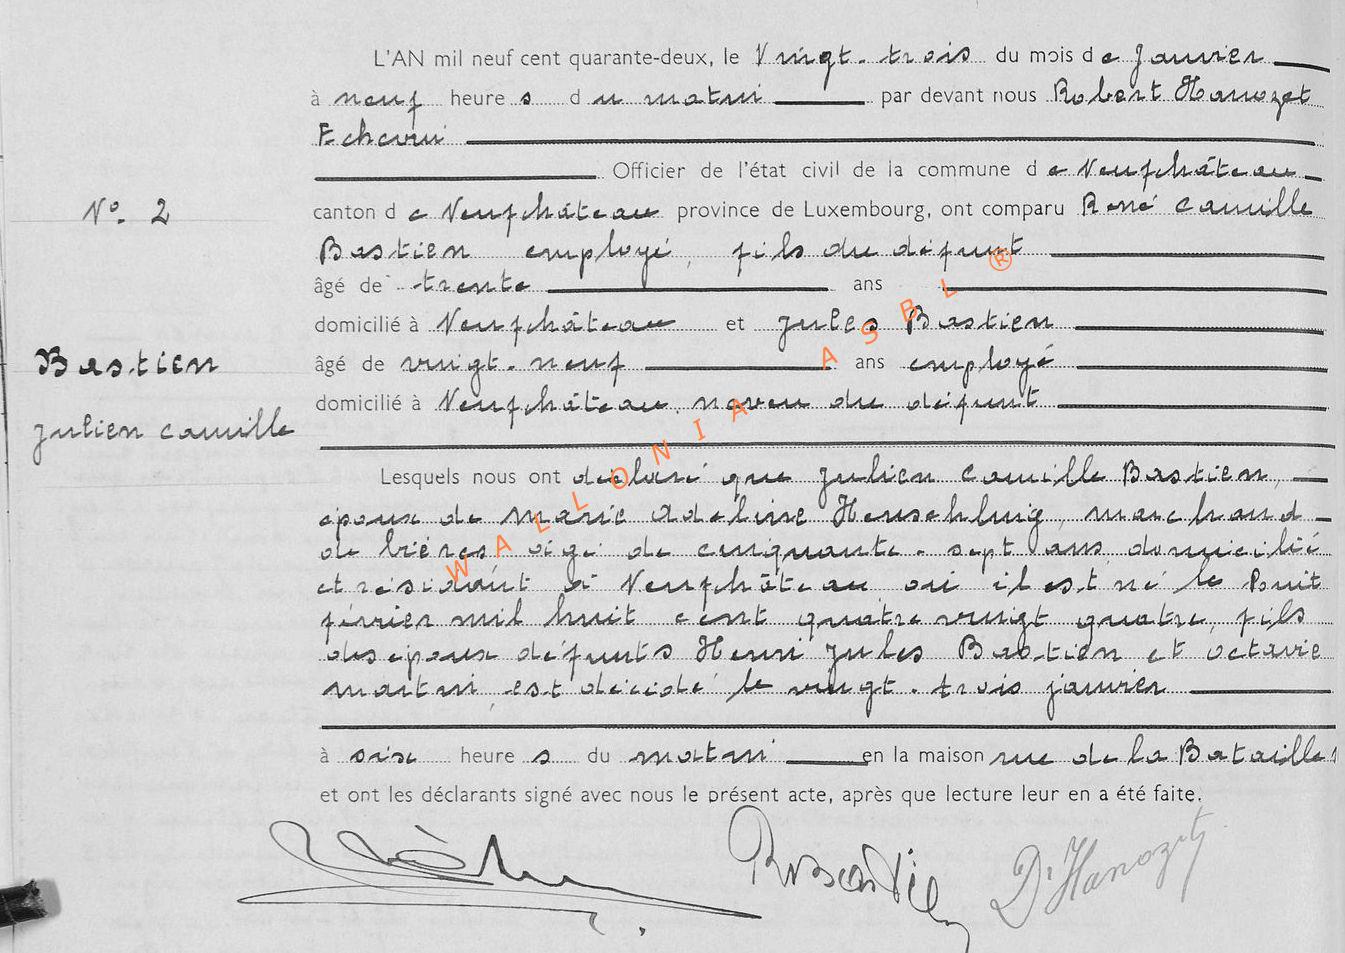 L'AN mil neuf cent quarante-deux, le Vingt-trois du mois de Janvier
à neuf heures du matin par devant nous Robert Hanozet
Echevin
Officier de l'état civil de la commune de Neufchâteau
N° 2
canton de Neufchâteau province de Luxembourg, ont comparu René Camille
Bastien employé, fils du défunt
âgé de trente ans
domicilié à Neufchâteau et Jules Bastien
Bastien
âgé de vingt-neuf ans employé
domicilié à Neufchâteau, neveu du défunt
Julien Camille
Lesquels nous ont déclaré que Julien Camille Bastien,
époux de Marie Adeline Henschling, marchand
de bières âgé de cinquante-sept ans domicilié
et résidant à Neufchâteau où il est né le huit
février mil huit cent quatre vingt quatre, fils
des époux défunts Henri Jules Bastien et Octavie
Martin, est décédé le vingt-trois janvier
à six heures du matin en la maison rue de la Bataille
et ont les déclarants signé avec nous le présent acte, après que lecture leur en a été faite.
RBastien
Dr Hanozet
WALLONIA ASBL ®